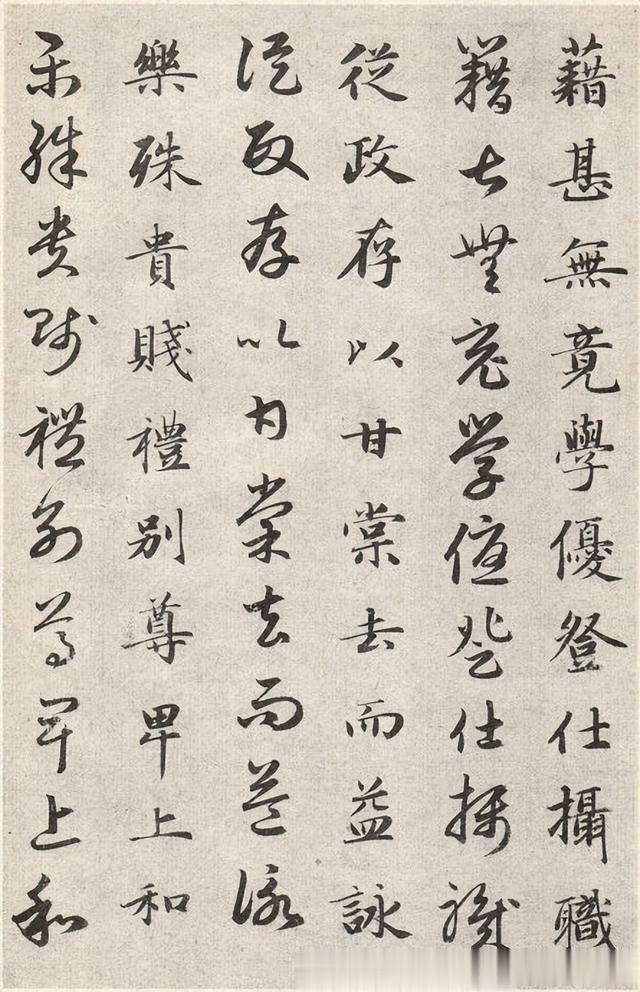 藉甚無竟學優登仕攝職
籍甚無竟學優登仕攝職
從政存以甘棠去而益詠
從政存以甘棠去而益詠
樂殊貴賤禮別尊卑上和
樂殊貴賤禮別尊卑上和